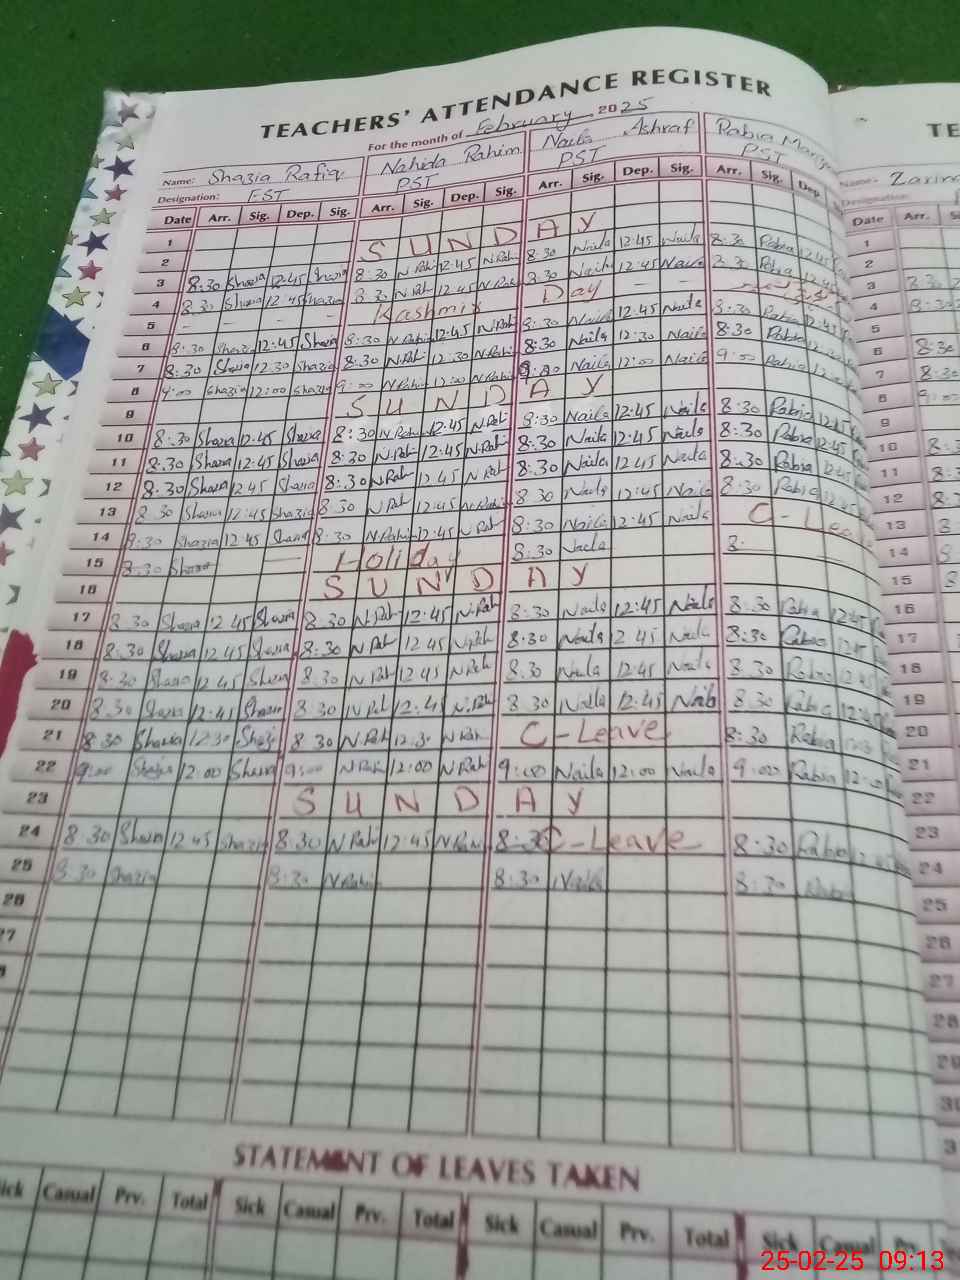 TEACHERS' ATTENDANCE REGISTER
For the month of February 2025
Name: Shazia Rafiq Nahida Rahim Naila Ashraf Rabia
Designation: EST PST PST PST
Date Arr. Sig. Dep. Sig. Arr. Sig. Dep. Sig. Arr. Sig. Dep. Sig. Arr. Sig. Dep
1
2 SUNDAY
3 8:30 Shazia 12:45 Shazia 8:30 N Rah 12:45 N Rah 8:30 Naila 12:45 Naila 8:30 Rabia 12:45
4 8:30 Shazia 12:45 Shazia 8:30 N Rah 12:45 N Rah 8:30 Naila 12:45 Naila 8:30 Rabia 12:45
5 - - - - Kashmir Day - -
6 8:30 Shazia 12:45 Shazia 8:30 N Rahim 12:45 N Rah 8:30 Naila 12:45 Naila 8:30 Rabia 12:45
7 8:30 Shazia 12:30 Shazia 8:30 N Rah 12:30 N Rah 8:30 Naila 12:30 Naila 8:30 Rabia
8 9:00 Shazia 12:00 Shazia 9:00 N Rahim 12:00 N Rahim Naila 12:00 Naila 9:00 Rabia 12:00
9 SUNDAY
10 8:30 Shazia 12:45 Shazia 8:30 N Rah 12:45 N Rah 8:30 Naila 12:45 Naila 8:30 Rabia 12:45
11 8:30 Shazia 12:45 Shazia 8:30 N Rah 12:45 N Rah 8:30 Naila 12:45 Naila 8:30 Rabia 12:45
12 8:30 Shazia 12 45 Shazia 8:30 N Rah 12:45 N Rah 8:30 Naila 12:45 Naila 8:30 Rabia 12:45
13 8:30 Shazia 12:45 Shazia 8:30 N Rah 12:45 N Rahim 8:30 Naila 12:45 Naila 8:30 Rabia 12:45
14 8:30 Shazia 12:45 Shazia 8:30 N Rahim 12:45 N Rah 8:30 Naila 12:45 Naila C-Lea
15 8:30 Shazia — Holiday 8:30 Naila 8:
16 SUNDAY
17 8:30 Shazia 12:45 Shazia 8:30 N Rah 12:45 N Rah 8:30 Naila 12:45 Naila 8:30 Rabia 12:45
18 8:30 Shazia 12 45 Shazia 8:30 N Rah 12 45 N Rah 8:30 Naila 2 45 Naila 8:30 Rabia 12:45
19 8:30 Shazia 12 45 Shazia 8:30 N Rah 12 45 N Rah 8:30 Naila 12:45 Naila 8:30 Rabia 12:45
20 8:30 Shazia 12:45 Shazia 8 30 N Rah 12:45 N Rah 8:30 Naila 12:45 Naila 8:30 Rabia 12:45
21 8:30 Shazia 12:30 Shazia 8 30 N Rah 12:30 N Rah C-Leave 8:30 Rabia
22 9:00 Shazia 12:00 Shazia 9:00 N Rah 12:00 N Rah 9:00 Naila 12:00 Naila 9:00 Rabia 12:00
23 SUNDAY
24 8:30 Shazia 12 45 Shazia 8:30 N Rah 12:45 N Rah 8:30 C-Leave 8:30 Rabia 12:45
25 8:30 Shazia 8:30 N Rahim 8:30 Naila 8:30 Rabia
26
27
STATEMENT OF LEAVES TAKEN
ick Casual Prv. Total Sick Casual Prv. Total Sick Casual Prv. Total Sick Casual Prv
TE
Name:- Zarina
Designation
Date Arr.
1
2
3
4
5
6 8:30
7 8:30
8
9
10 8:3
11 8:3
12 8:
13 8
14 8
15 8
16
17
18
19
20
21
22
23
24
25
26
27
28
29
30
3
25-02-25 09:13